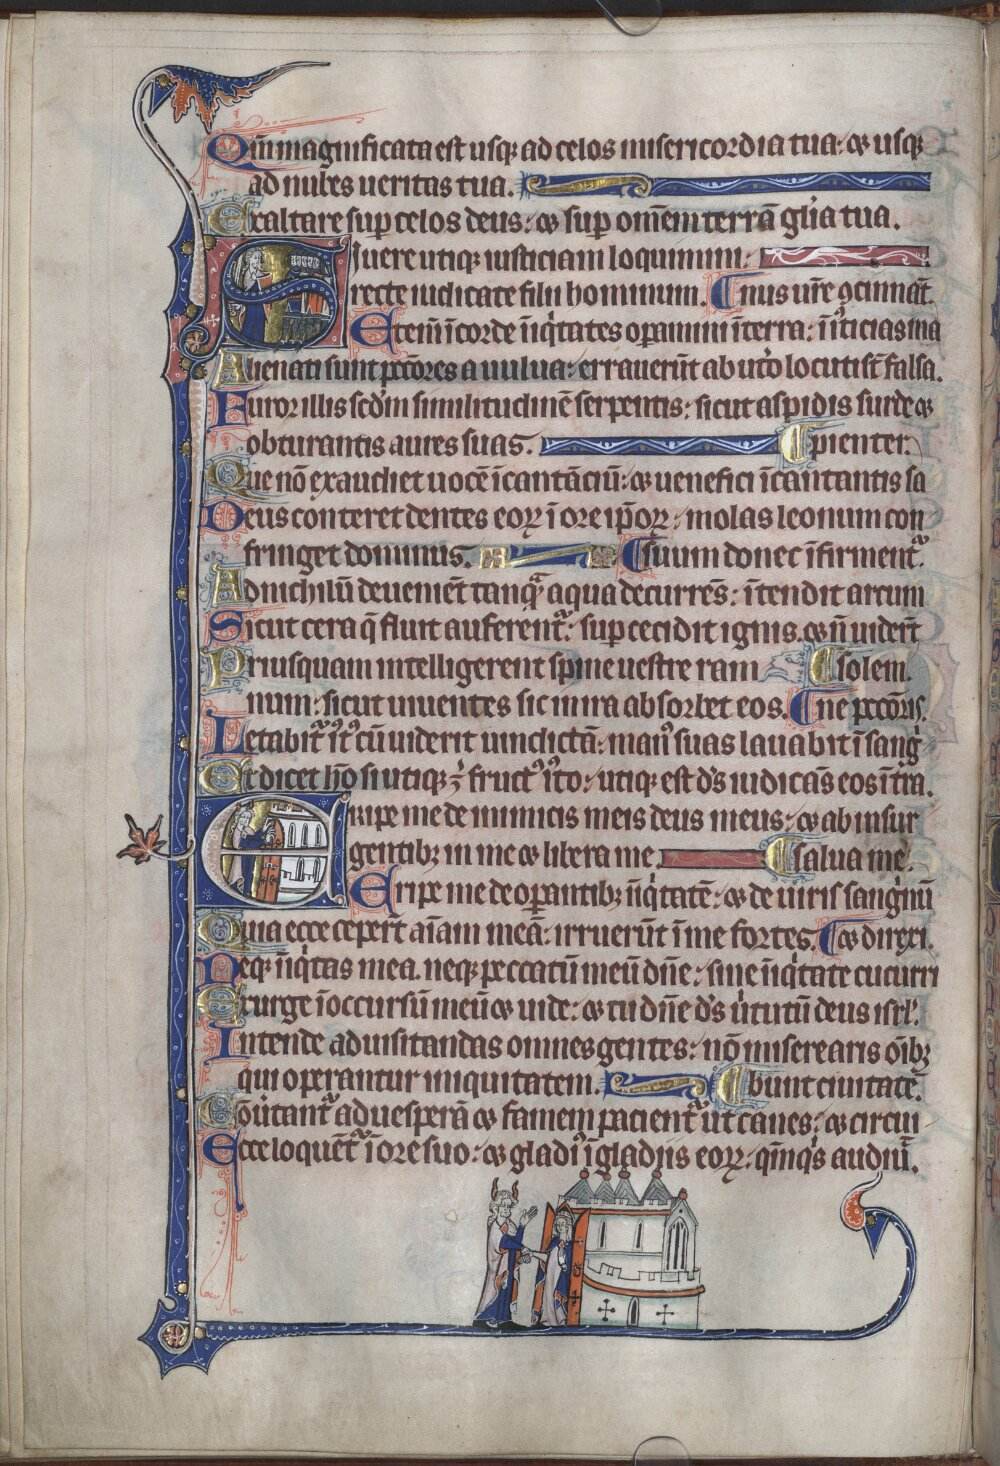 Qm̄ magnificata est usq; ad celos misericordia tua: ⁊ usq;
ad nubes ueritas tua.
Exaltare sup celos deus: ⁊ sup om̄em terrā glīa tua.
Si uere utiq; iusticiam loquimini:
recte iudicate filii hominum. n̄us ur̄e ↄcinnāt.
Eteni̅ ī corde īiq̇tates oꝑamini ī terra: īiusticias ma
Alienati sunt pctōres a uulua: errauerūt ab ut̓o locuti st̄ falsa.
Furor illis scdm̄ similitudinē serpentis: sicut aspidis surde ⁊
obturantis aures suas. pienter.
Que nō exaudiet uocē īcantāciū: ⁊ uenefici īcantantis sa
Deus conteret dentes eoꝝ ī ore ip̄oꝝ: molas leonum con
fringet dominus. suum donec īfirment̄.
Ad nichilū deueniēt tanqᵃ aqua decurrēs: ītendit arcum
Sicut cera q̄ fluit auferent̄: sup cecidit ignis. ⁊ ñ uider̄t
Priusquam intelligerent spine uestre ram solem.
num: sicut uiuentes sic in ira absorbet eos. ne pctōris.
Letabit̄ iust̓ cū uiderit uindictā: man̓ suas lauabit ī sanġ
Et dicet hō si utiq; ē fruct̓ iusto: utiq; est ds̄ iudicās eos ī tr̄a.
Eripe me de inimicis meis deus meus: ⁊ ab insur
gentibꝫ in me ⁊ libera me. salua me.
Eripe me de oꝑantibꝫ īiq̇tatē: ⁊ de uiris sanġnū
Quia ecce ceper̄t aīam meā: irruerūt ī me fortes. ⁊ direxi.
Neq; īiq̇tas mea. neq; peccatū meū dn̄e: sine īiq̇tate cucurri
Exurge ī occursū meū ⁊ uide: ⁊ tu dn̄e ds̄ u̇tutū deus isrl̓.
Intende ad uisitandas omnes gentes: nō miserearis oībꝫ
qui operantur iniquitatem. bunt ciuitatē.
Cōu̇tant̄ ad uesperā ⁊ famem pacient̄ ut canes: ⁊ circui
Ecce loquent̄ ī ore suo: ⁊ gladi̓ ī gladiis eoꝝ: qm̄ qi̓s audiui̅t.